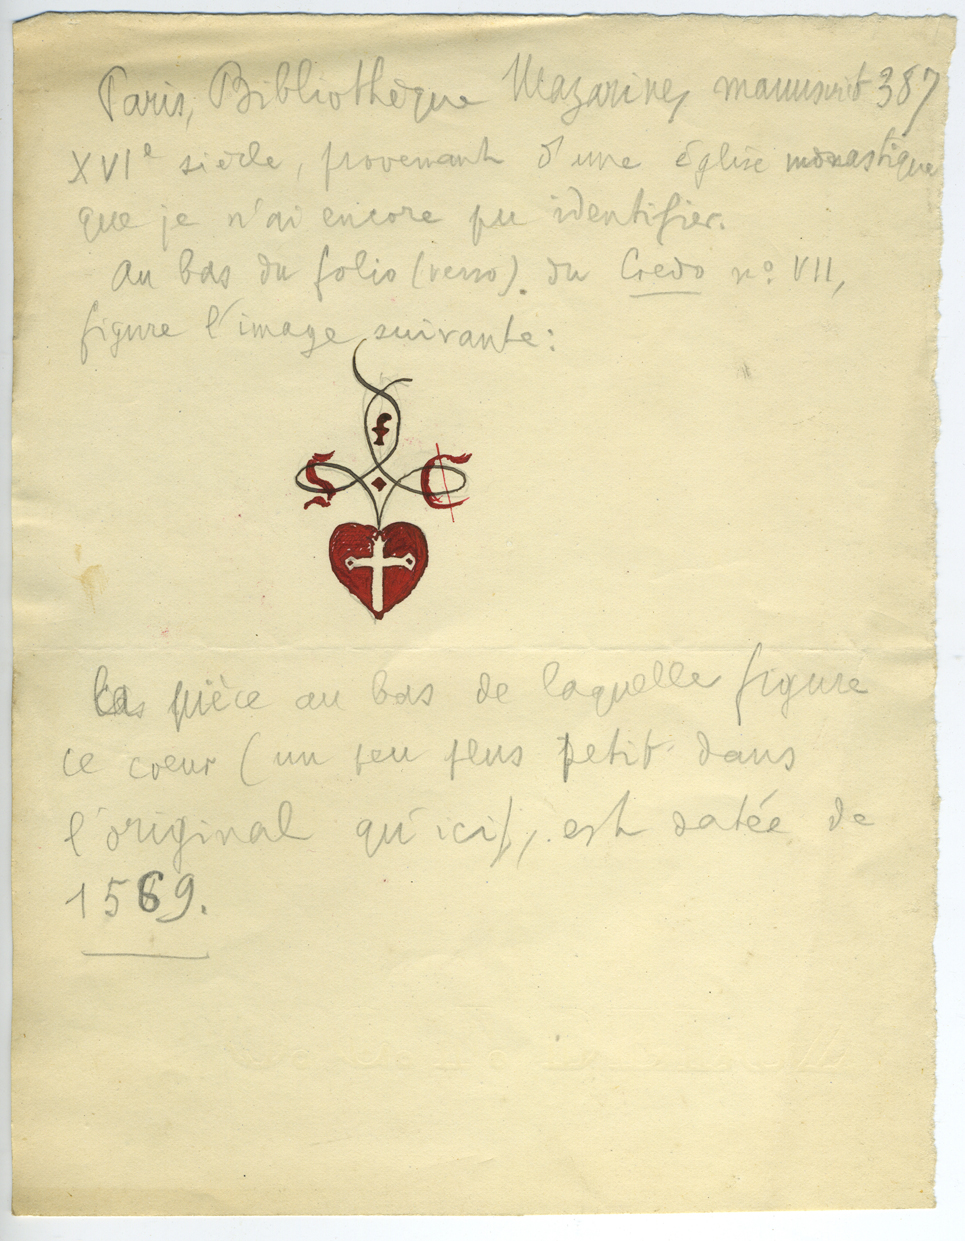 Paris, Bibliothèque Mazarine, manuscrit 387
XVIe siècle, provenant d'une église monastique
que je n'ai encore pu identifier.
Au bas du folio (verso). du Credo no. VII,
figure l'image suivante:
f
S C
La pièce au bas de laquelle figure
ce coeur (un peu plus petit dans
l'original qu'ici), est datée de
1569.